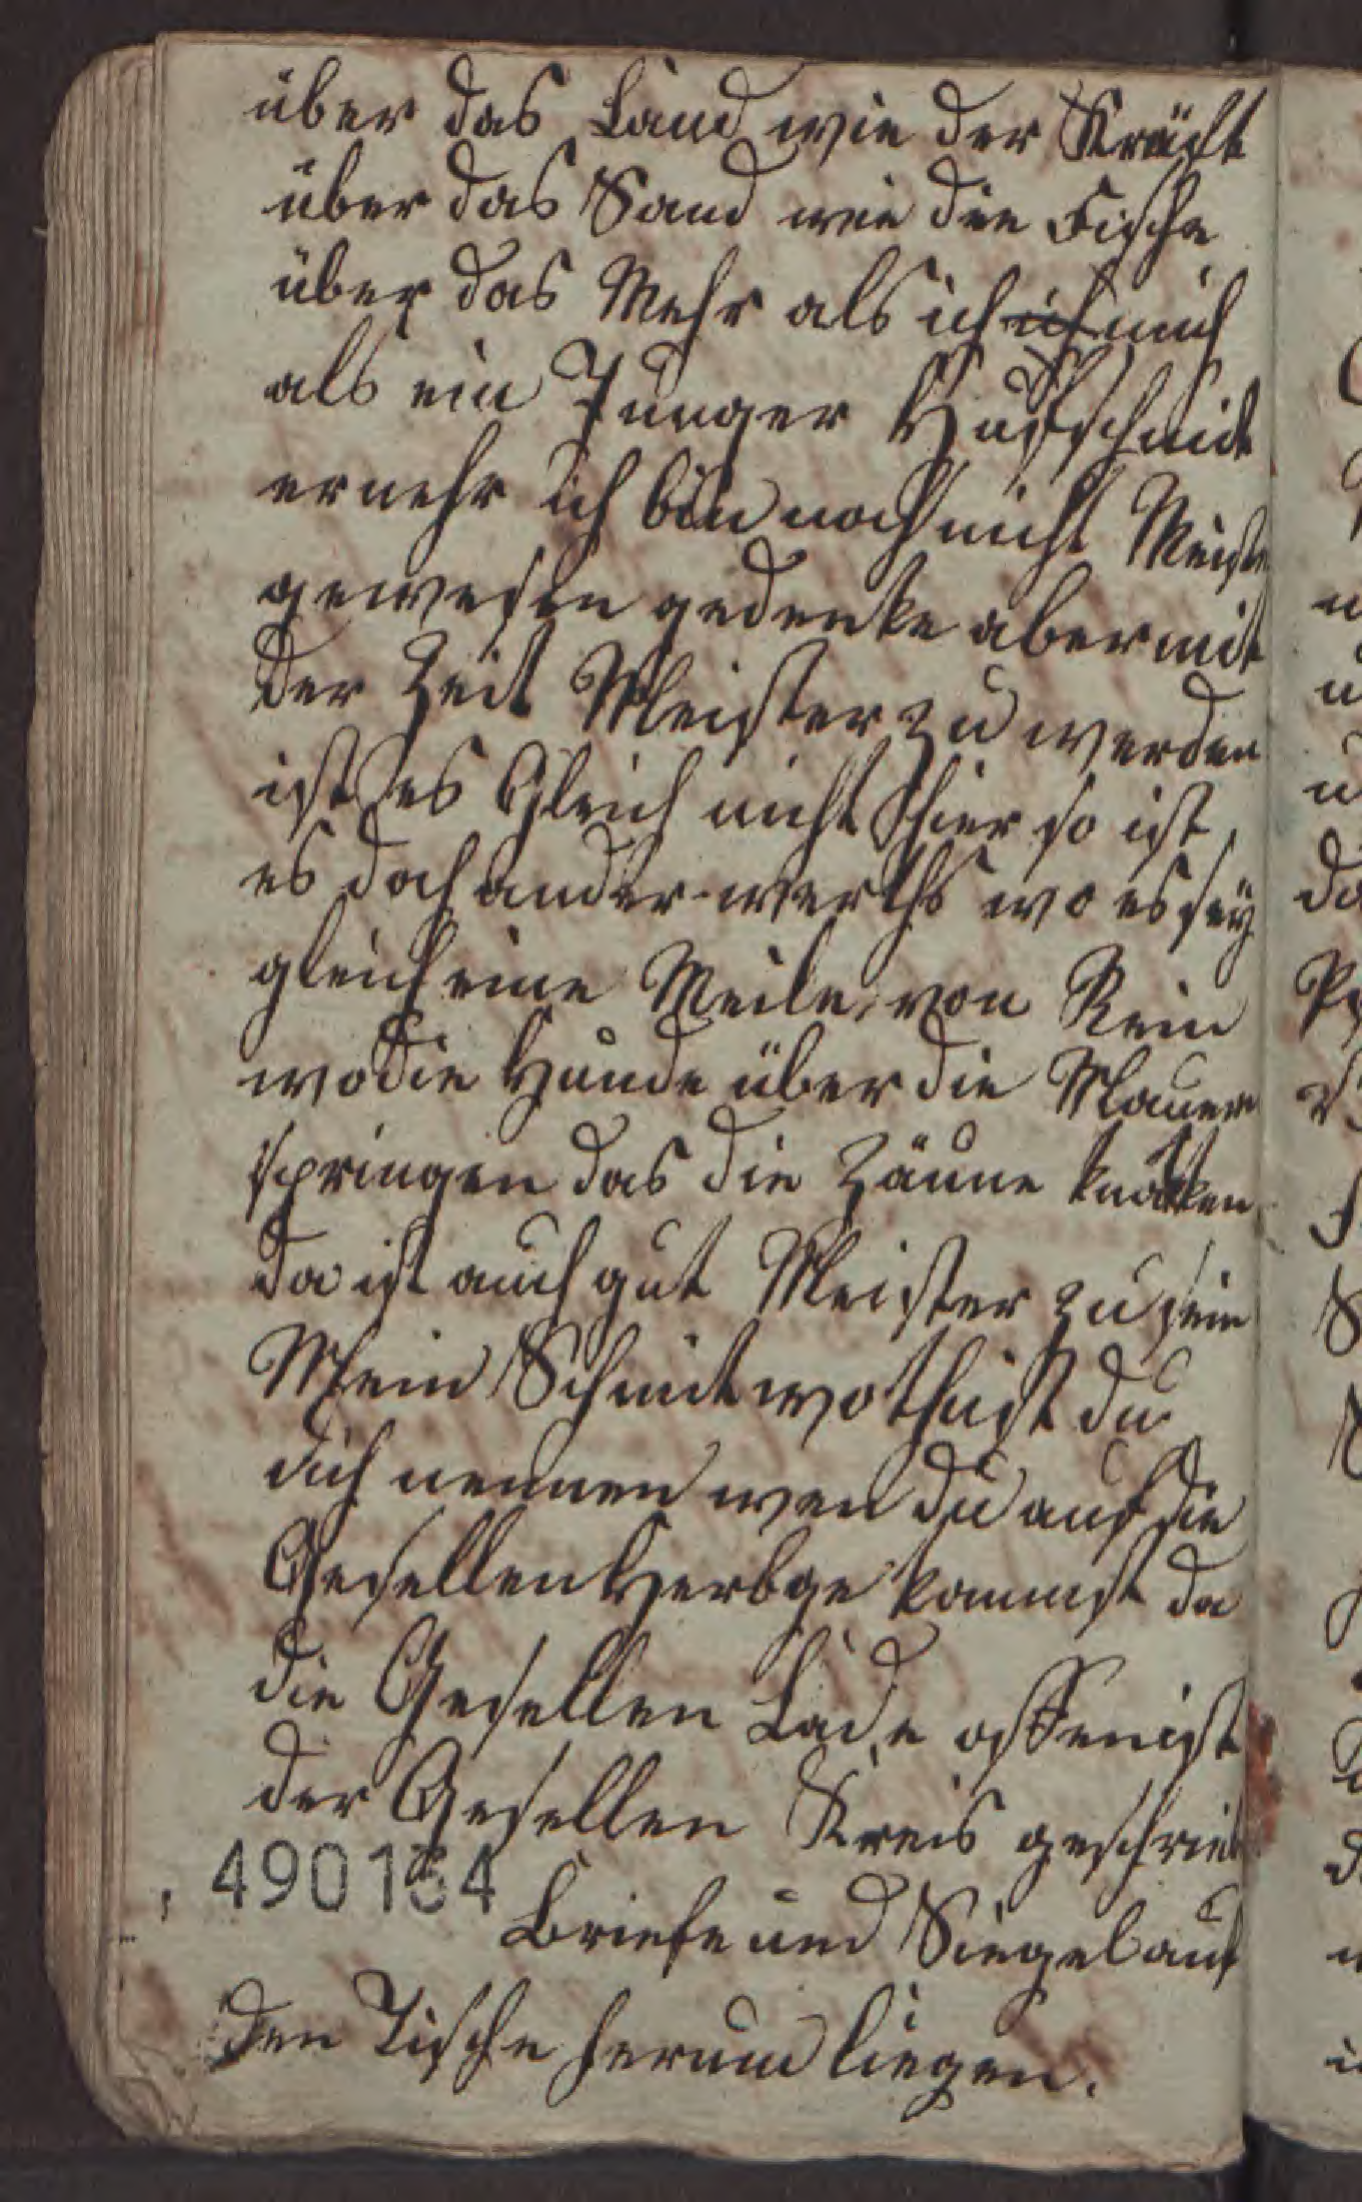 über das Land wie der Krebst
über das Sand wie die Fische
über das Mehr als ich ich mich
als ein Junger Hufschmidt
ernehr ich bin noch nicht Meister
gewesen gedenke aber mit
der Zeit Meister zu werden
ist es Gleich nicht hier so ist
es doch ander-werths wo es seÿ
gleich eine Meile von Rein
wo die Hunde über die Mauer
springen das die Zäune knakken
da ist auch gut Meister zu sein
Mein Schmidt wo thust du
dich nennen wen du auf die
Gesellen Herbge kommst da
die Gesellen Lade offen ist
der Gesellen Kreis geschrieb
490134
Briefe und Siegel auf
den Tische herum liegen.